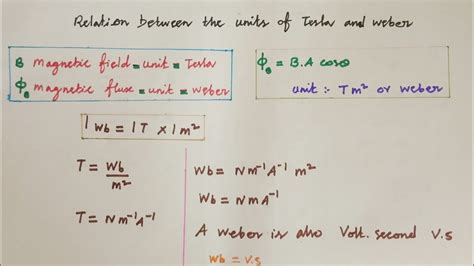 Relation between the units of Tesla and weber
B magnetic field = unit = Tesla
ϕ_B magnetic flux = unit = weber
ϕ_B = B.A cosθ
unit :- Tm² or weber
1 Wb = 1T × 1m²
T = Wb/m²
T = Nm⁻¹A⁻¹
Wb = Nm⁻¹A⁻¹ m²
Wb = NmA⁻¹
A weber is also Volt. second V.s
Wb = V.s